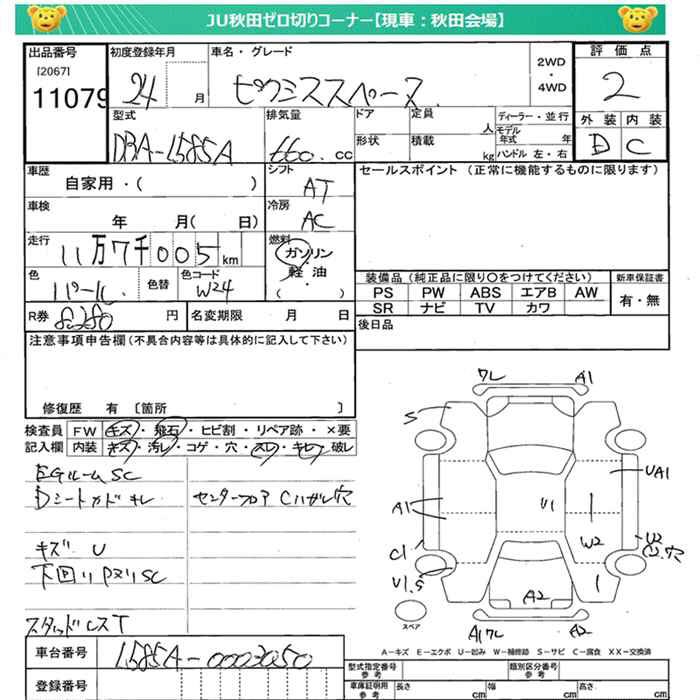 JU秋田ゼロ切りコーナー【現車：秋田会場】
出品番号 初度登録年月 車名・グレード 評価点
[2067]
11079 24 月 ピクシススペース 2WD・4WD 2
型式 排気量 ドア 定員 人 ディーラー・並行 外装 内装
DBA-L585A 660. cc 形状 積載 kg モデル年式 年 ハンドル 左・右 D C
車歴 シフト セールスポイント (正常に機能するものに限ります)
自家用・( ) AT
車検 冷房
年 月( 日) AC
走行 燃料
11万7千005km ガソリン
色 色替 色コード 軽油
パール. W24 ( )
装備品 (純正品に限り〇をつけてください) 新車保証書
PS PW ABS エアB AW 有・無
SR ナビ TV カワ
R券 8280 円 名変期限 月 日
後日品
注意事項申告欄(不具合内容等は具体的に記入して下さい)
修復歴 有 〔箇所 〕
検査員 FW キズ・飛石・ヒビ割・リペア跡・×要
記入欄 内装 キズ・汚レ・コゲ・穴・スレ・キレ・破レ
EGルームSC
Dシートカド キレ センターフロア Cハガレ穴
キズ U
下回リ Pヌリ SC
スタッドレスT
ワレ A1
S
UA1
A1 U1
W2 U2
C1 C2.穴
U1.S
A2
スペア
A1ワレ A2
A-キズ E-エクボ U-凹み W-補修跡 S-サビ C-腐食 XX-交換済
車台番号 L585A-0003050
型式指定番号 参考 類別区分番号 参考
登録番号
車庫証明用 参考 長さ cm 幅 cm 高さ cm